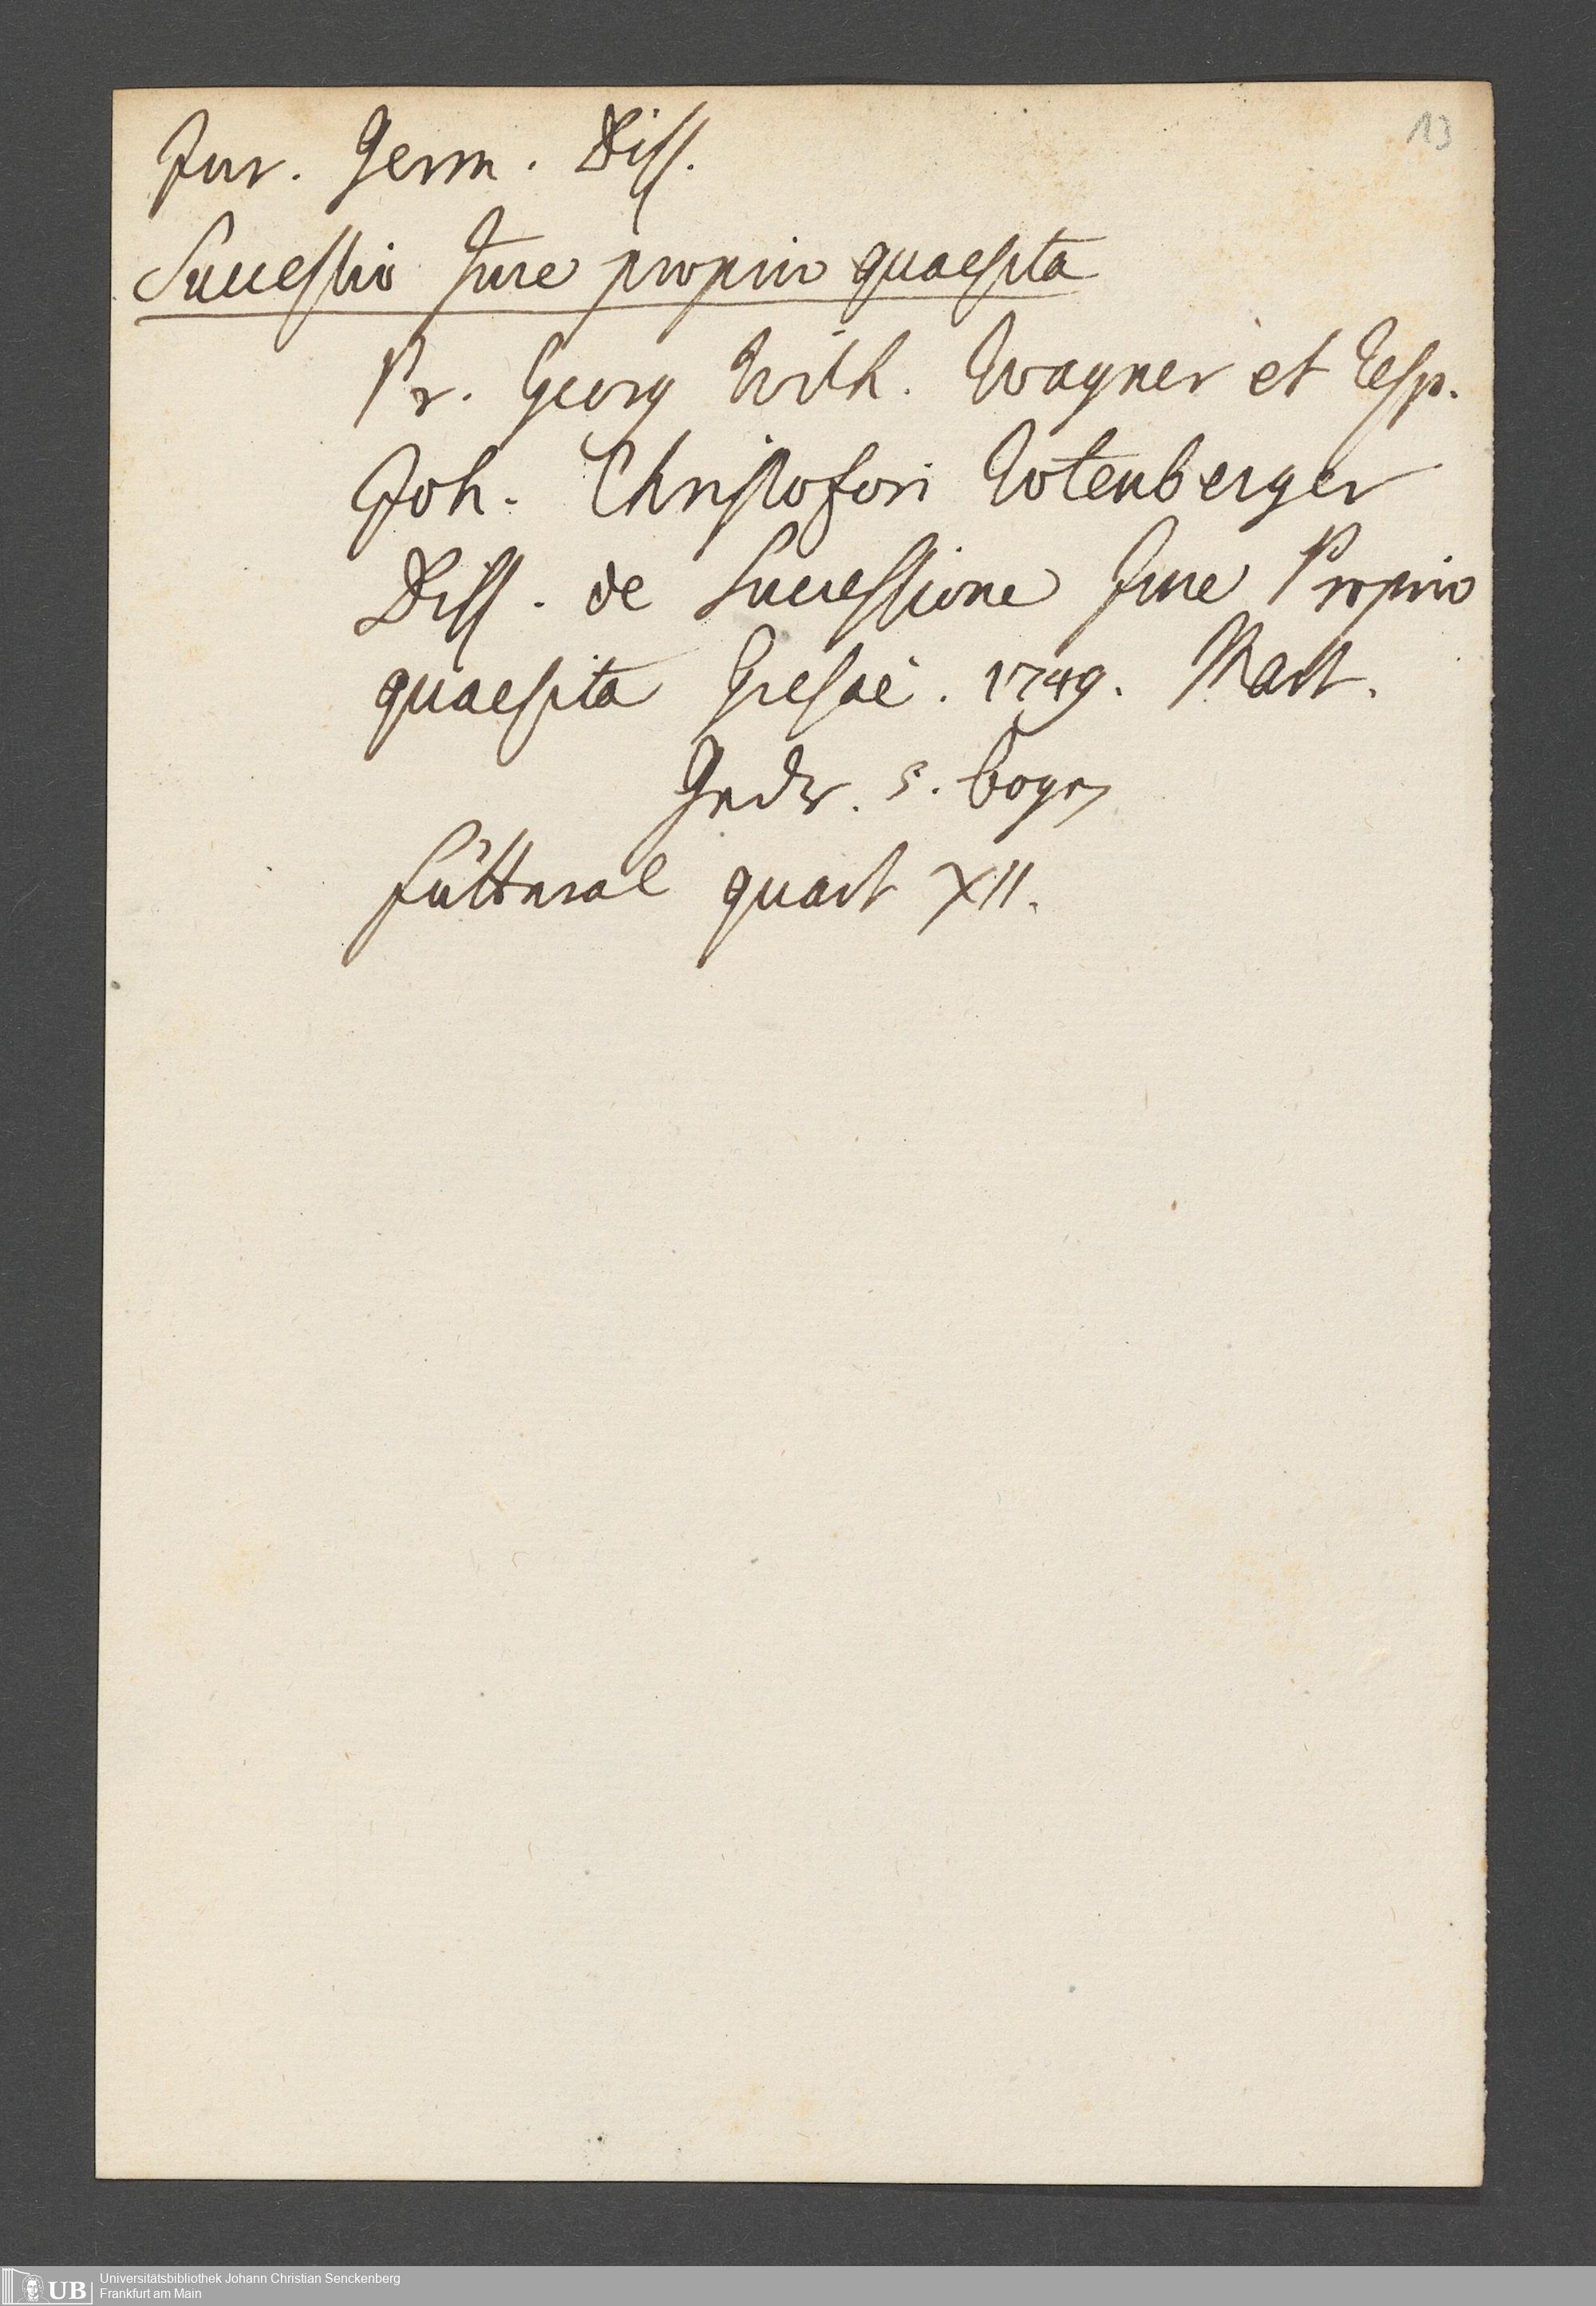 13
Jur. Germ. Diss.
Successio Jure proprio quaesita
Pr. Georg Wilh. Wagner et Resp.
Joh. Christofori Rotenberger
Diss. de Successione Jure Proprio
quaesita 1749. Mart.
Gedr. 5. bogen
futteral quart XII.
UB
Universitätsbibliothek Johann Christian Senckenberg
Frankfurt am Main